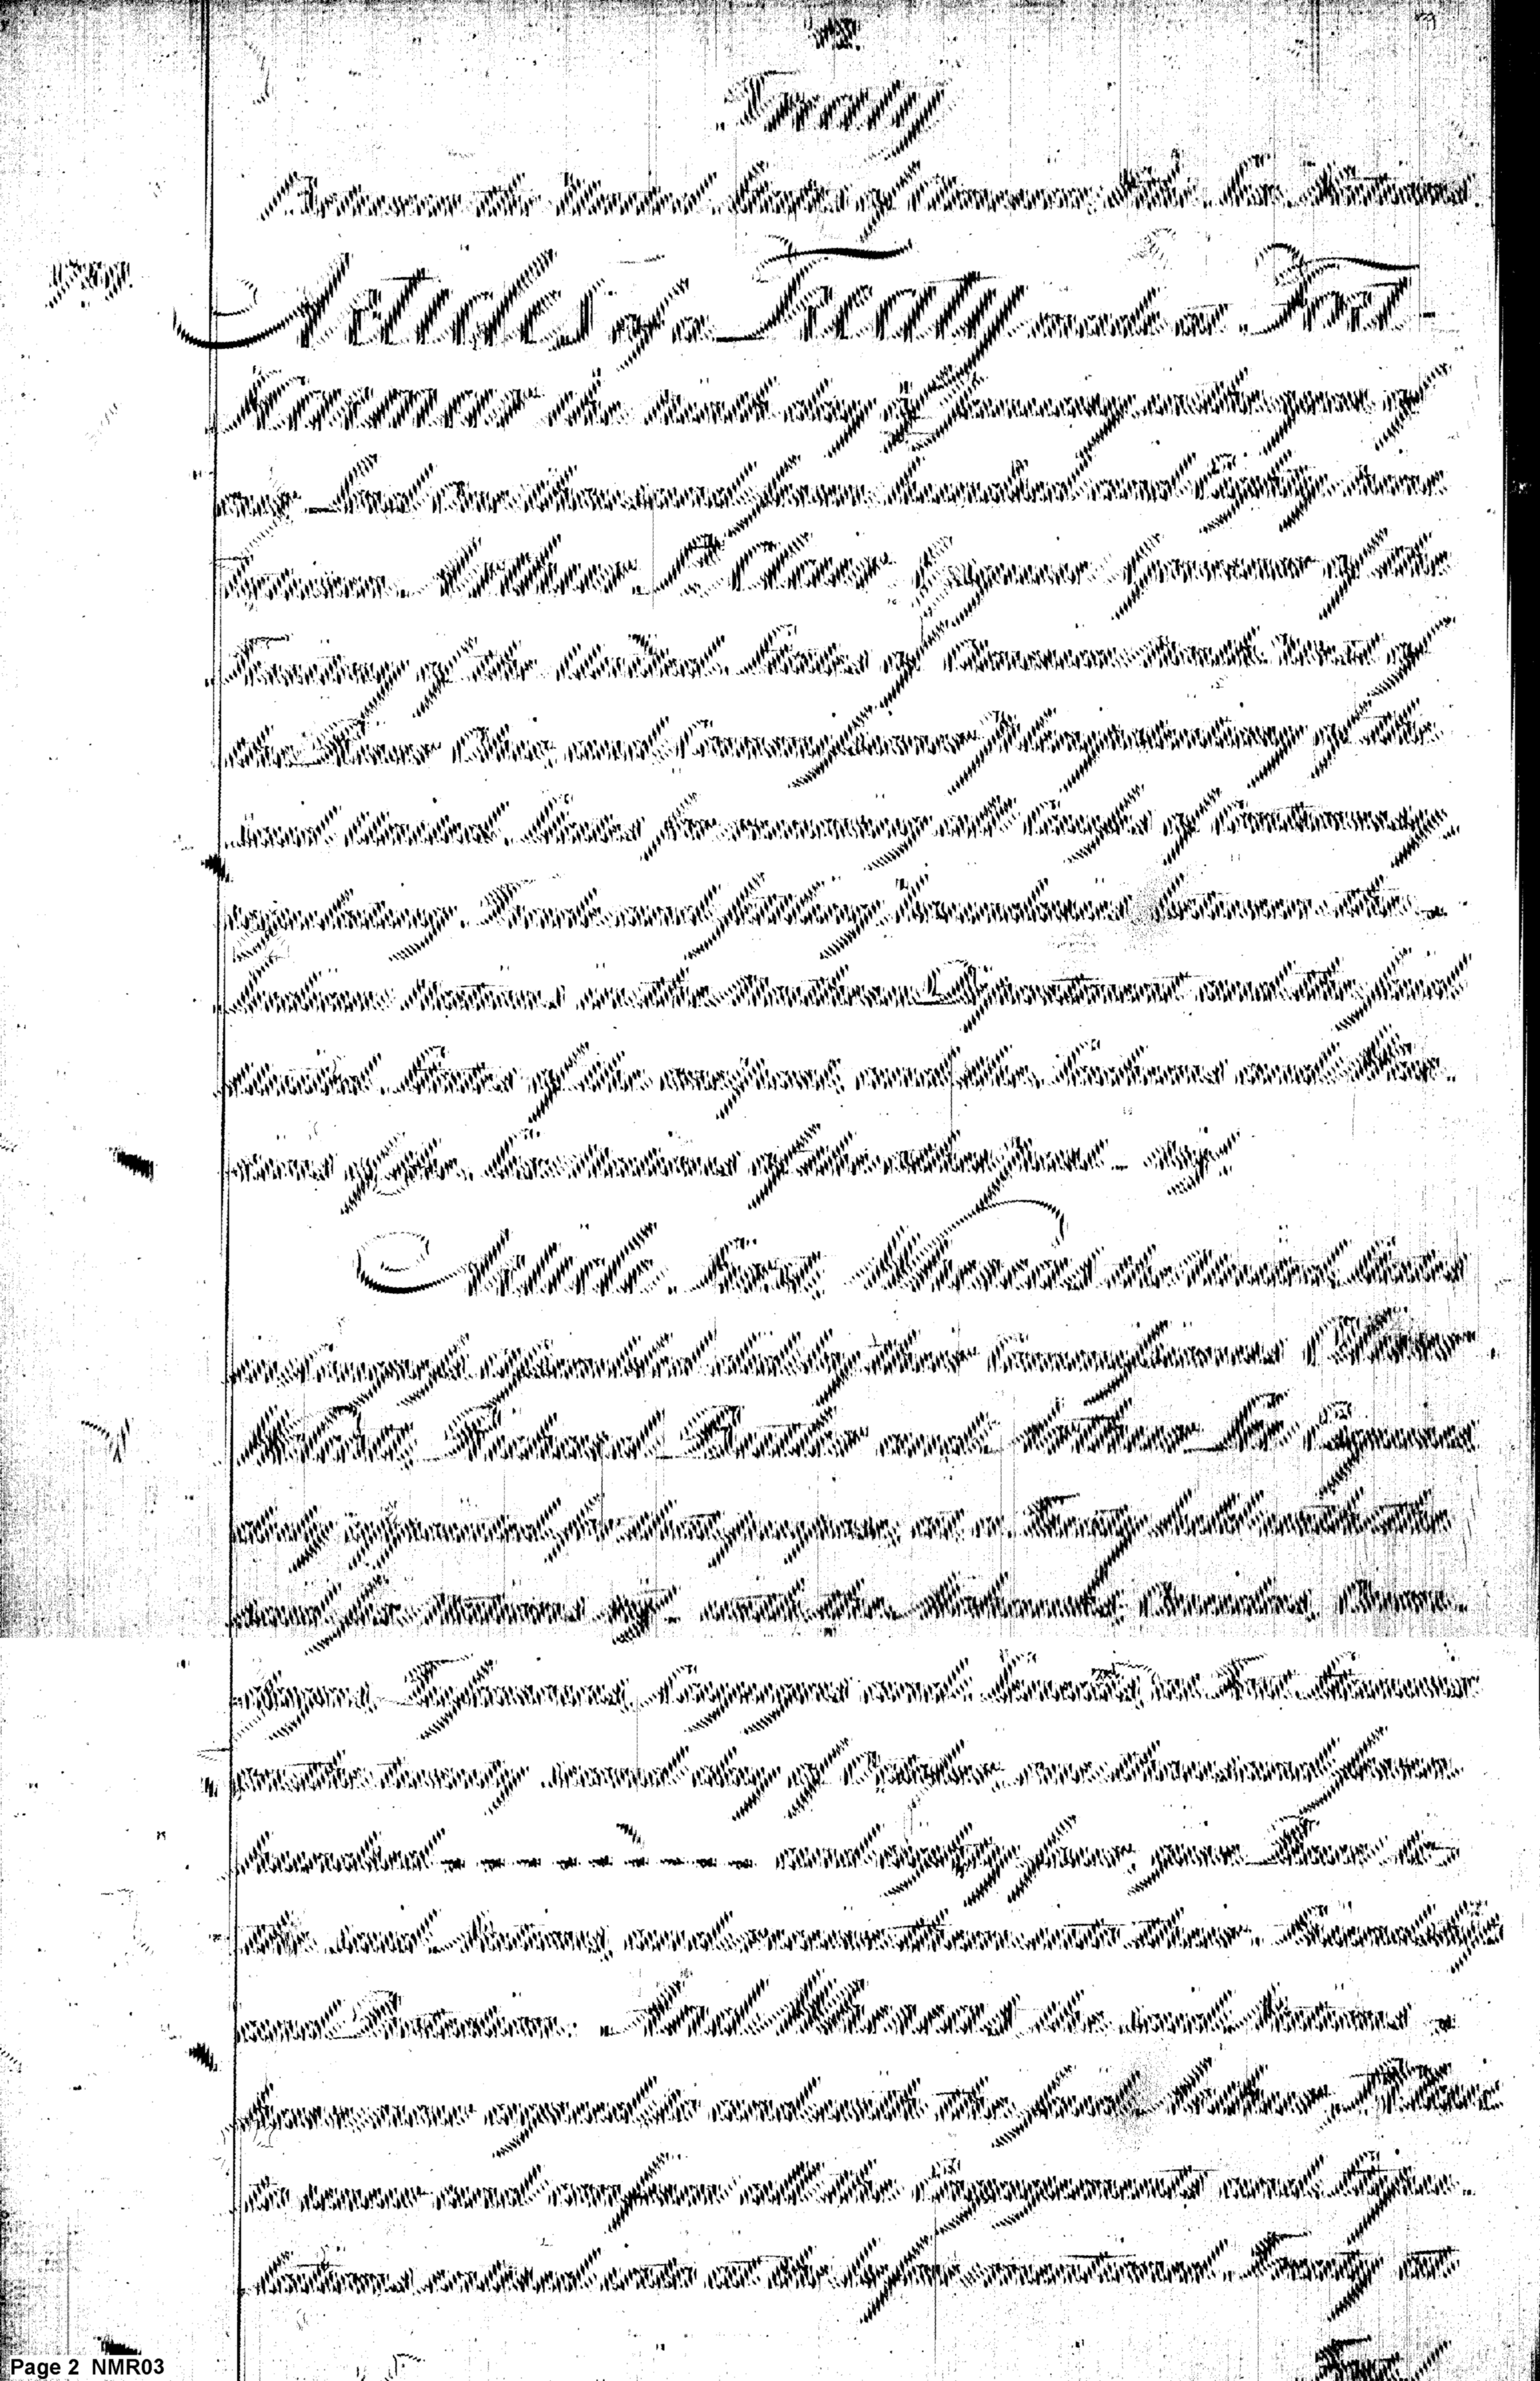 Treaty
Between the United States of America & the Six Nations.
Articles of a Treaty made at Fort
Harmar the ninth day of January in the year of
our Lord One thousand seven hundred and Eighty nine
between Arthur St Clair Esquire Governor of the
Territory of the United States of America North West of
the River Ohio, and Commissioner Plenipotentiary of the
said United States for removing all Causes of Controversy,
regulating Trade and settling Boundaries between the
Indian Nations in the Northern Department and the said
United States of the one part, and the Sachems and War-
riors of the Six Nations of the other part
Article first, Whereas the United States
in Congress assembled did by their Commissioners Oliver
Wolcott, Richard Butler and Arthur Lee Esquires
duly appointed for that purpose, at a Treaty held with the
said Six Nations with the Mohawks, Oneidas, Onon-
dagas, Tuscaroras, Cayugas and Senecas, at Fort Stanwix
on the twenty second day of October, one thousand seven
hundred - - - - - - - - - and eighty four, give Peace to
the said Nations, and receive them into their Friendship
and Protection. And Whereas the said Nations
have now agreed to and with the said Arthur St Clair
to renew and confirm all the Engagements and Stipu-
lations entered into at the before mentioned Treaty at
Fort
Page 2 NMR03